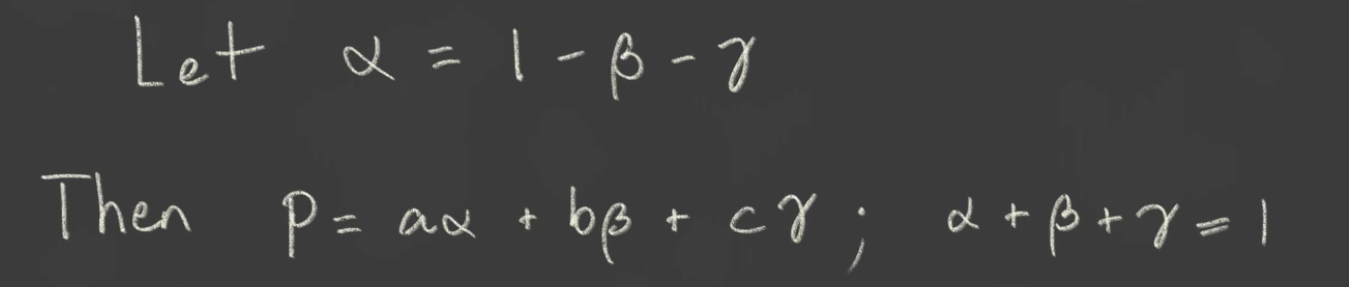 Let α = 1 - β - γ
Then p = aα + bβ + cγ ; α + β + γ = 1